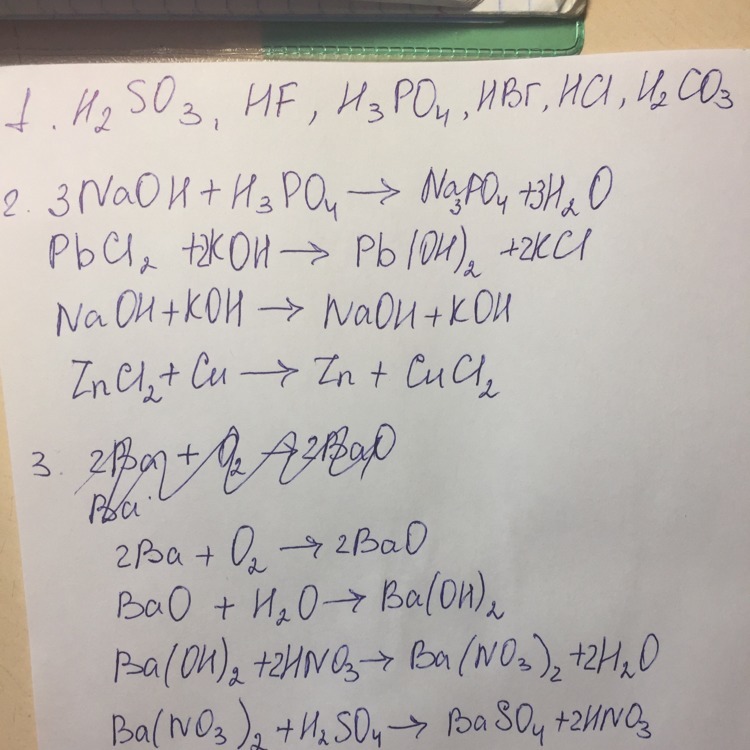 1. H₂SO₃, HF, H₃PO₄, HBr, HCl, H₂CO₃
2. 3NaOH + H₃PO₄ → Na₃PO₄ + 3H₂O
PbCl₂ + 2KOH → Pb(OH)₂ + 2KCl
NaOH + KOH → NaOH + KOH
ZnCl₂ + Cu → Zn + CuCl₂
3. 2Ba + O₂ → 2BaO
Ba
2Ba + O₂ → 2BaO
BaO + H₂O → Ba(OH)₂
Ba(OH)₂ + 2HNO₃ → Ba(NO₃)₂ + 2H₂O
Ba(NO₃)₂ + H₂SO₄ → BaSO₄ + 2HNO₃